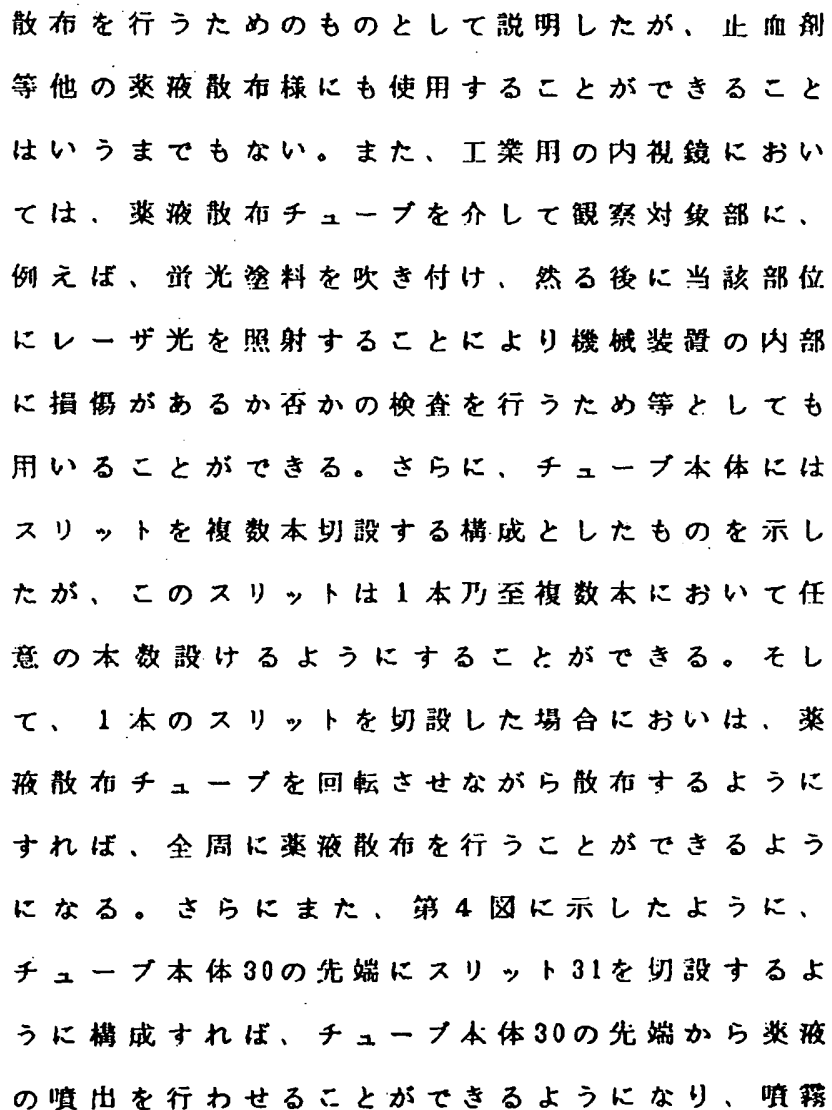 散布を行うためのものとして説明したが、止血剤
等他の薬液散布様にも使用することができること
はいうまでもない。また、工業用の内視鏡におい
ては、薬液散布チューブを介して観察対象部に、
例えば、蛍光塗料を吹き付け、然る後に当該部位
にレーザ光を照射することにより機械装置の内部
に損傷があるか否かの検査を行うため等としても
用いることができる。さらに、チューブ本体には
スリットを複数本切設する構成としたものを示し
たが、このスリットは1本乃至複数本において任
意の本数設けるようにすることができる。そし
て、1本のスリットを切設した場合においは、薬
液散布チューブを回転させながら散布するように
すれば、全周に薬液散布を行うことができるよう
になる。さらにまた、第4図に示したように、
チューブ本体30の先端にスリット31を切設するよ
うに構成すれば、チューブ本体30の先端から薬液
の噴出を行わせることができるようになり、噴霧